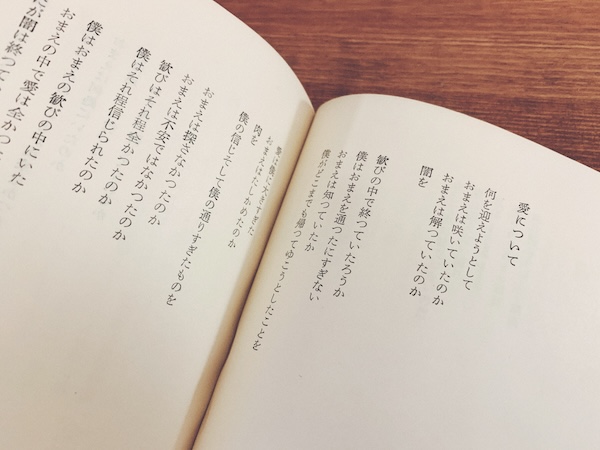 愛について
何を迎えようとして
おまえは咲いていたのか
おまえは解っていたのか
闇を
歓びの中で終つていたろうか
僕はおまえを通つたにすぎない
おまえは知っていたか
僕がどこまでも帰ってゆこうとしたことを
掌は僕に大きすぎた
おまえはたしかめたのか
肉を
僕の信じそして僕の通りすぎたものを
おまえは探さなかつたのか
おまえは不安ではなかつたのか
歓びはそれ程全かつたのか
僕はそれ程信じられたのか
僕はおまえの歓びの中にいた
おまえの中で愛は全かつた
だが闇は終つて